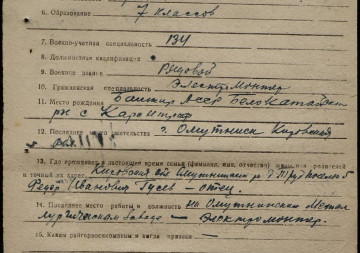 6. Образование 7 классов
7. Военно-учетная специальность 134
8. Должностная квалификация —
9. Военное звание Рядовой
10. Гражданская специальность Электромонтер
11. Место рождения Башкир АССР Белокатайский
рн с Карантрав
12. Последнее место жительства г. Омутнинск Кировской
обл.
13. Где проживает в настоящее время семья (фамилия, имя, отчество) родителей
и точный их адрес Кировская обл Омутнинский р-н
Федор Иванович Гусев – отец.
14. Последнее место работы и должность на Омутнинском Метал
лургическом Заводе – Электромонтер.
15. Каким райгорвоенкоматом и когда призван —